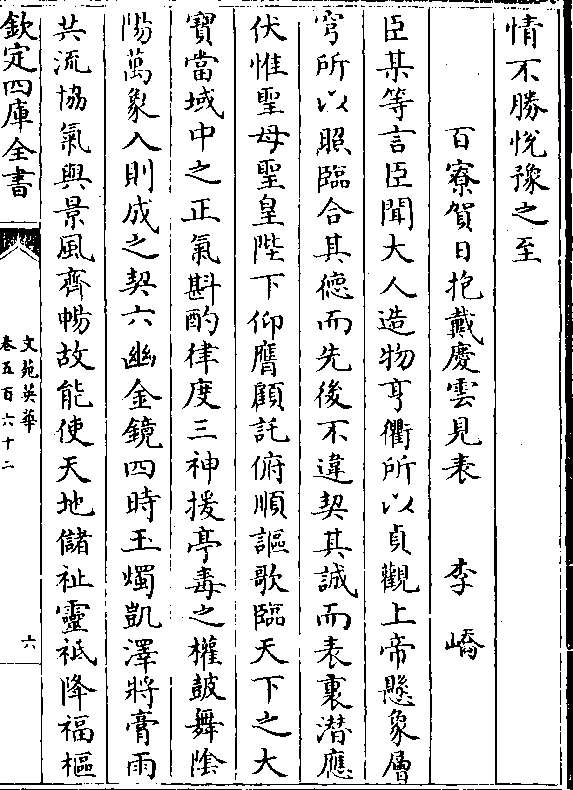 情不勝悅豫之至
百寮賀日抱戴慶雲見表 李嶠
臣某等言臣聞大人造物亨衢所以貞觀上帝懸象層
穹所以照臨合其德而先後不違契其誠而表裏潜應
伏惟聖母聖皇陛下仰膺顧託俯順謳歌臨天下之大
寶當域中之正氣斟酌律度三神援亭毒之權鼓舞陰
陽萬象入則成之契六幽金鏡四時玉燭凱澤將膏雨
共流協氣與景風齊暢故能使天地儲祉靈祇降福樞
欽定四庫全書
文苑英華
卷五百六十二
六